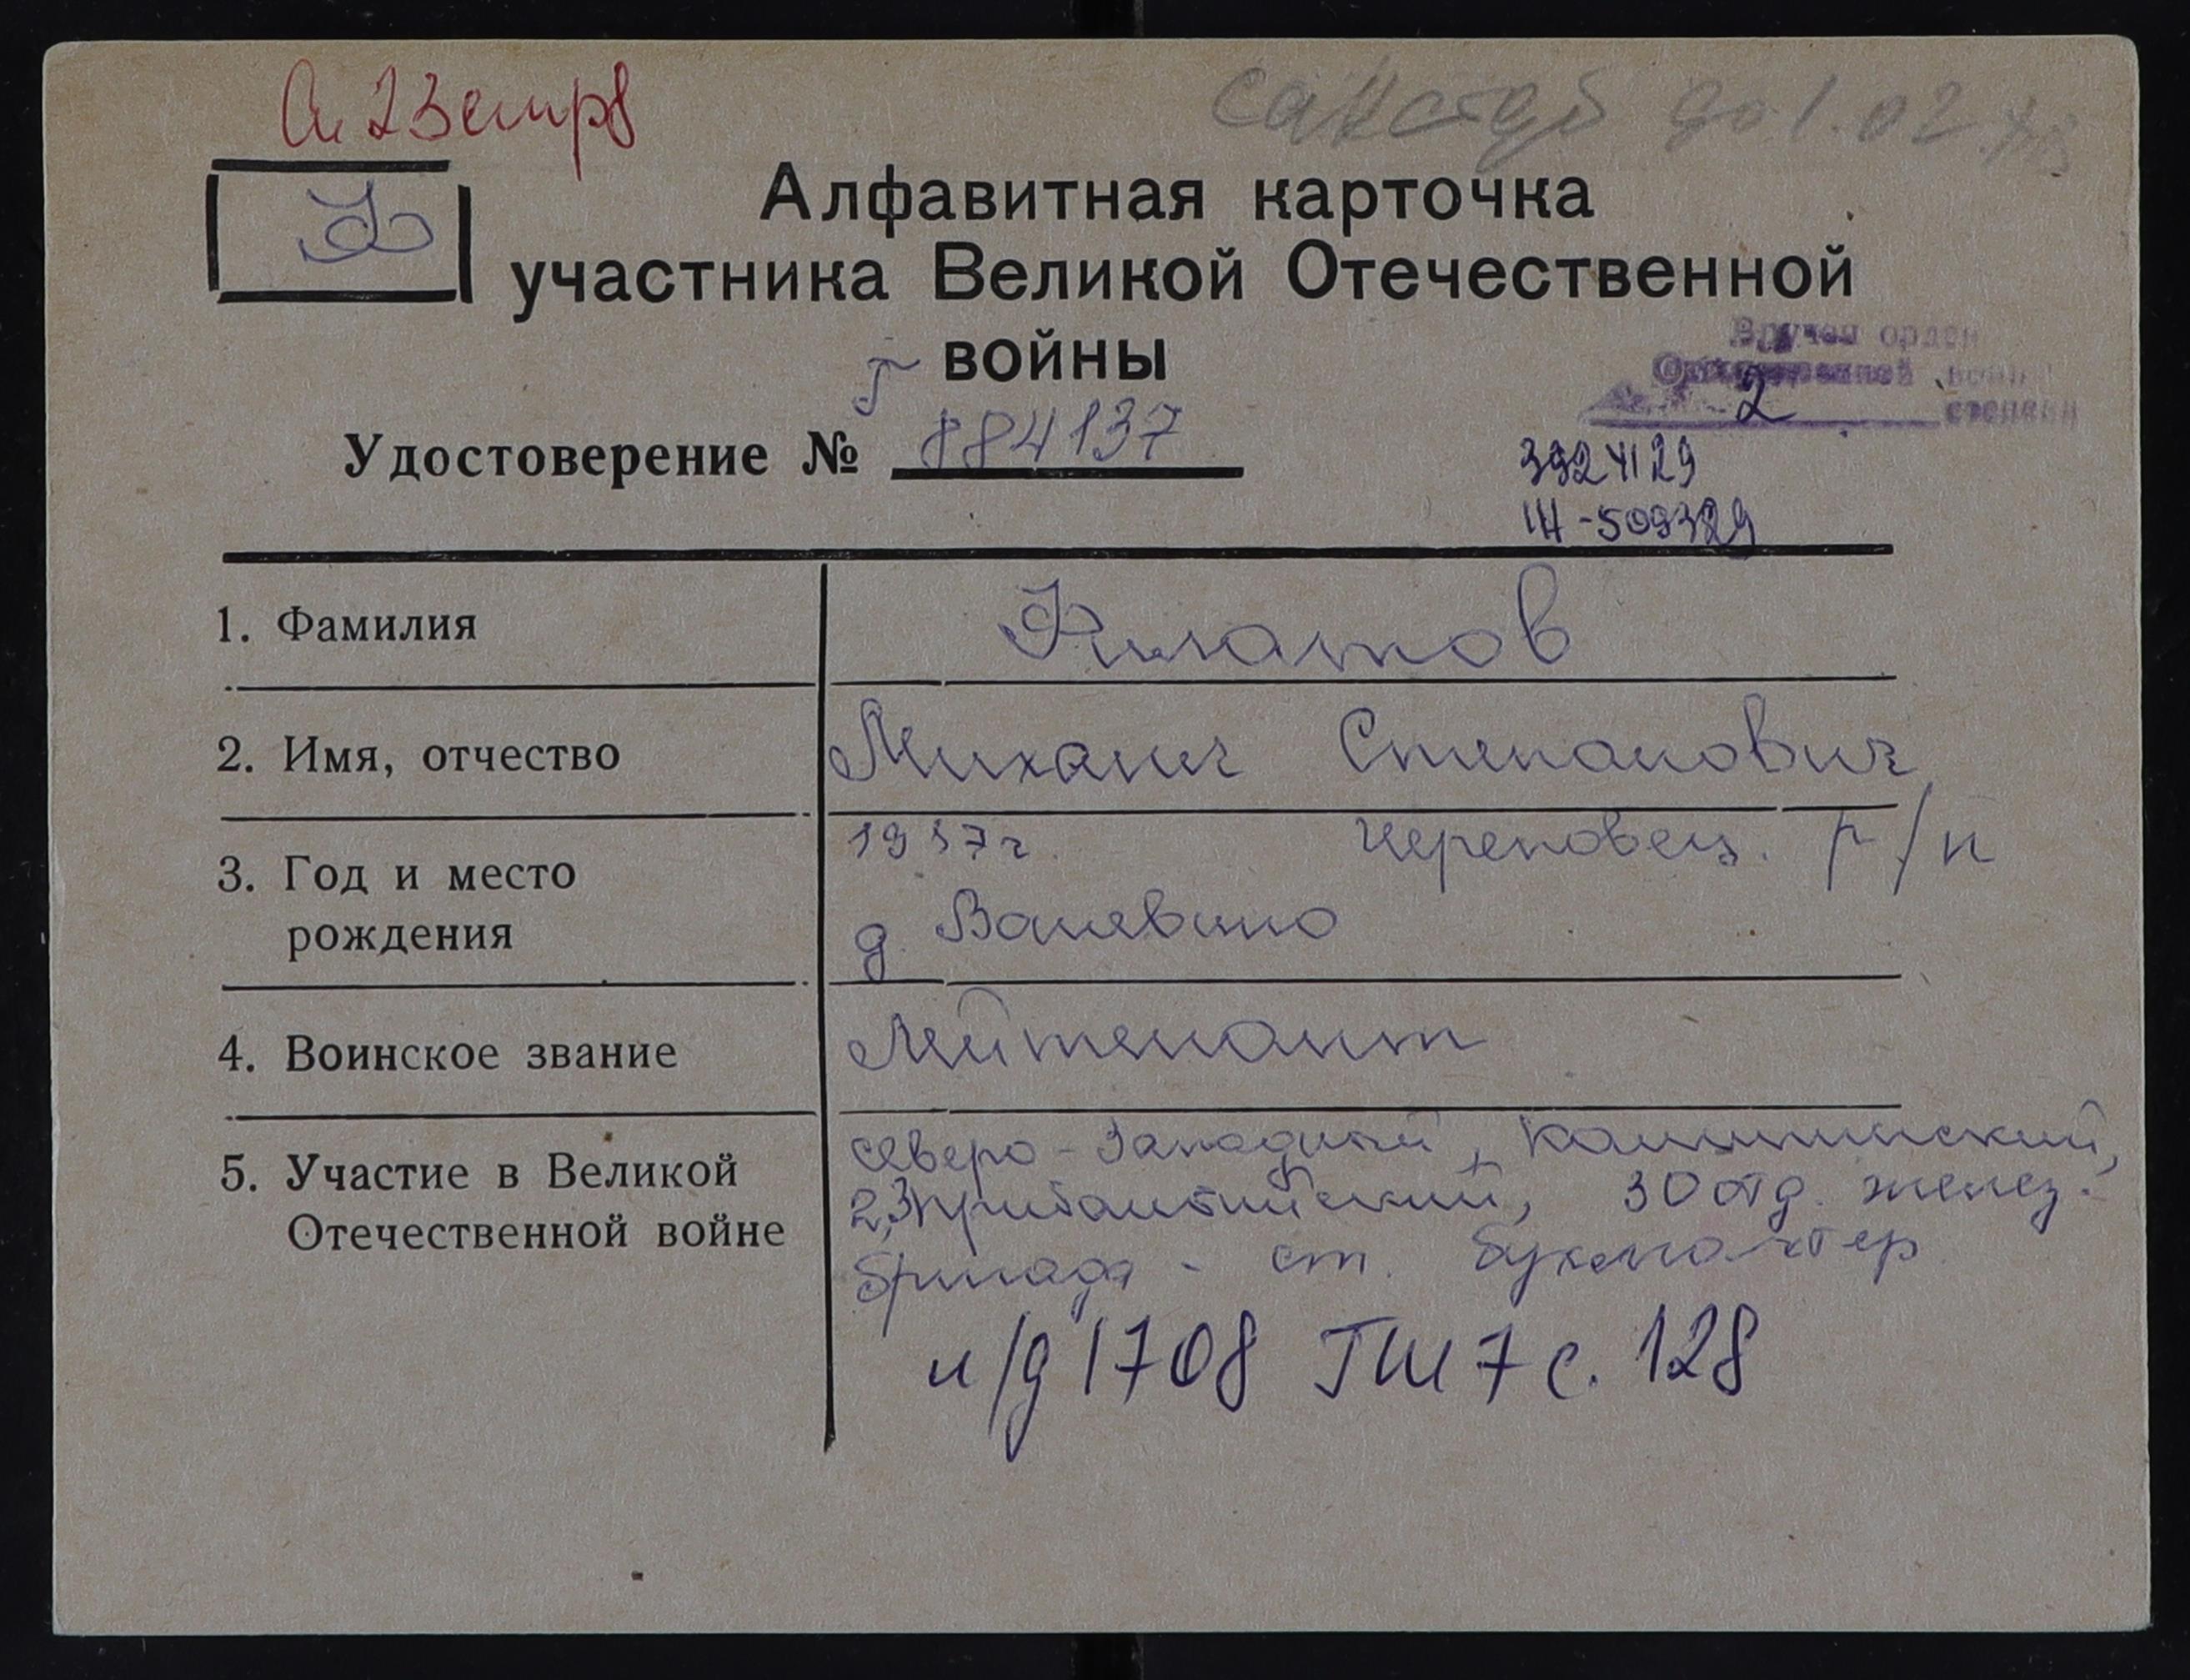 Ф
Алфавитная карточка
участника Великой Отечественной
войны
Вручен орден
Отечественной войны
2 степени
Удостоверение № Г 884137
3924129
509329
1. Фамилия Филатов
2. Имя, отчество Михаил Степанович
3. Год и место рождения 1917г Череповец. р/н
д.
4. Воинское звание Лейтенант
5. Участие в Великой Отечественной войне северо-Западный, Калининский,
2,3 прибалтийский, 30 отд. желез.
бригада - ст. бухгалтер
л/д 1708 ГШ 7 с. 128